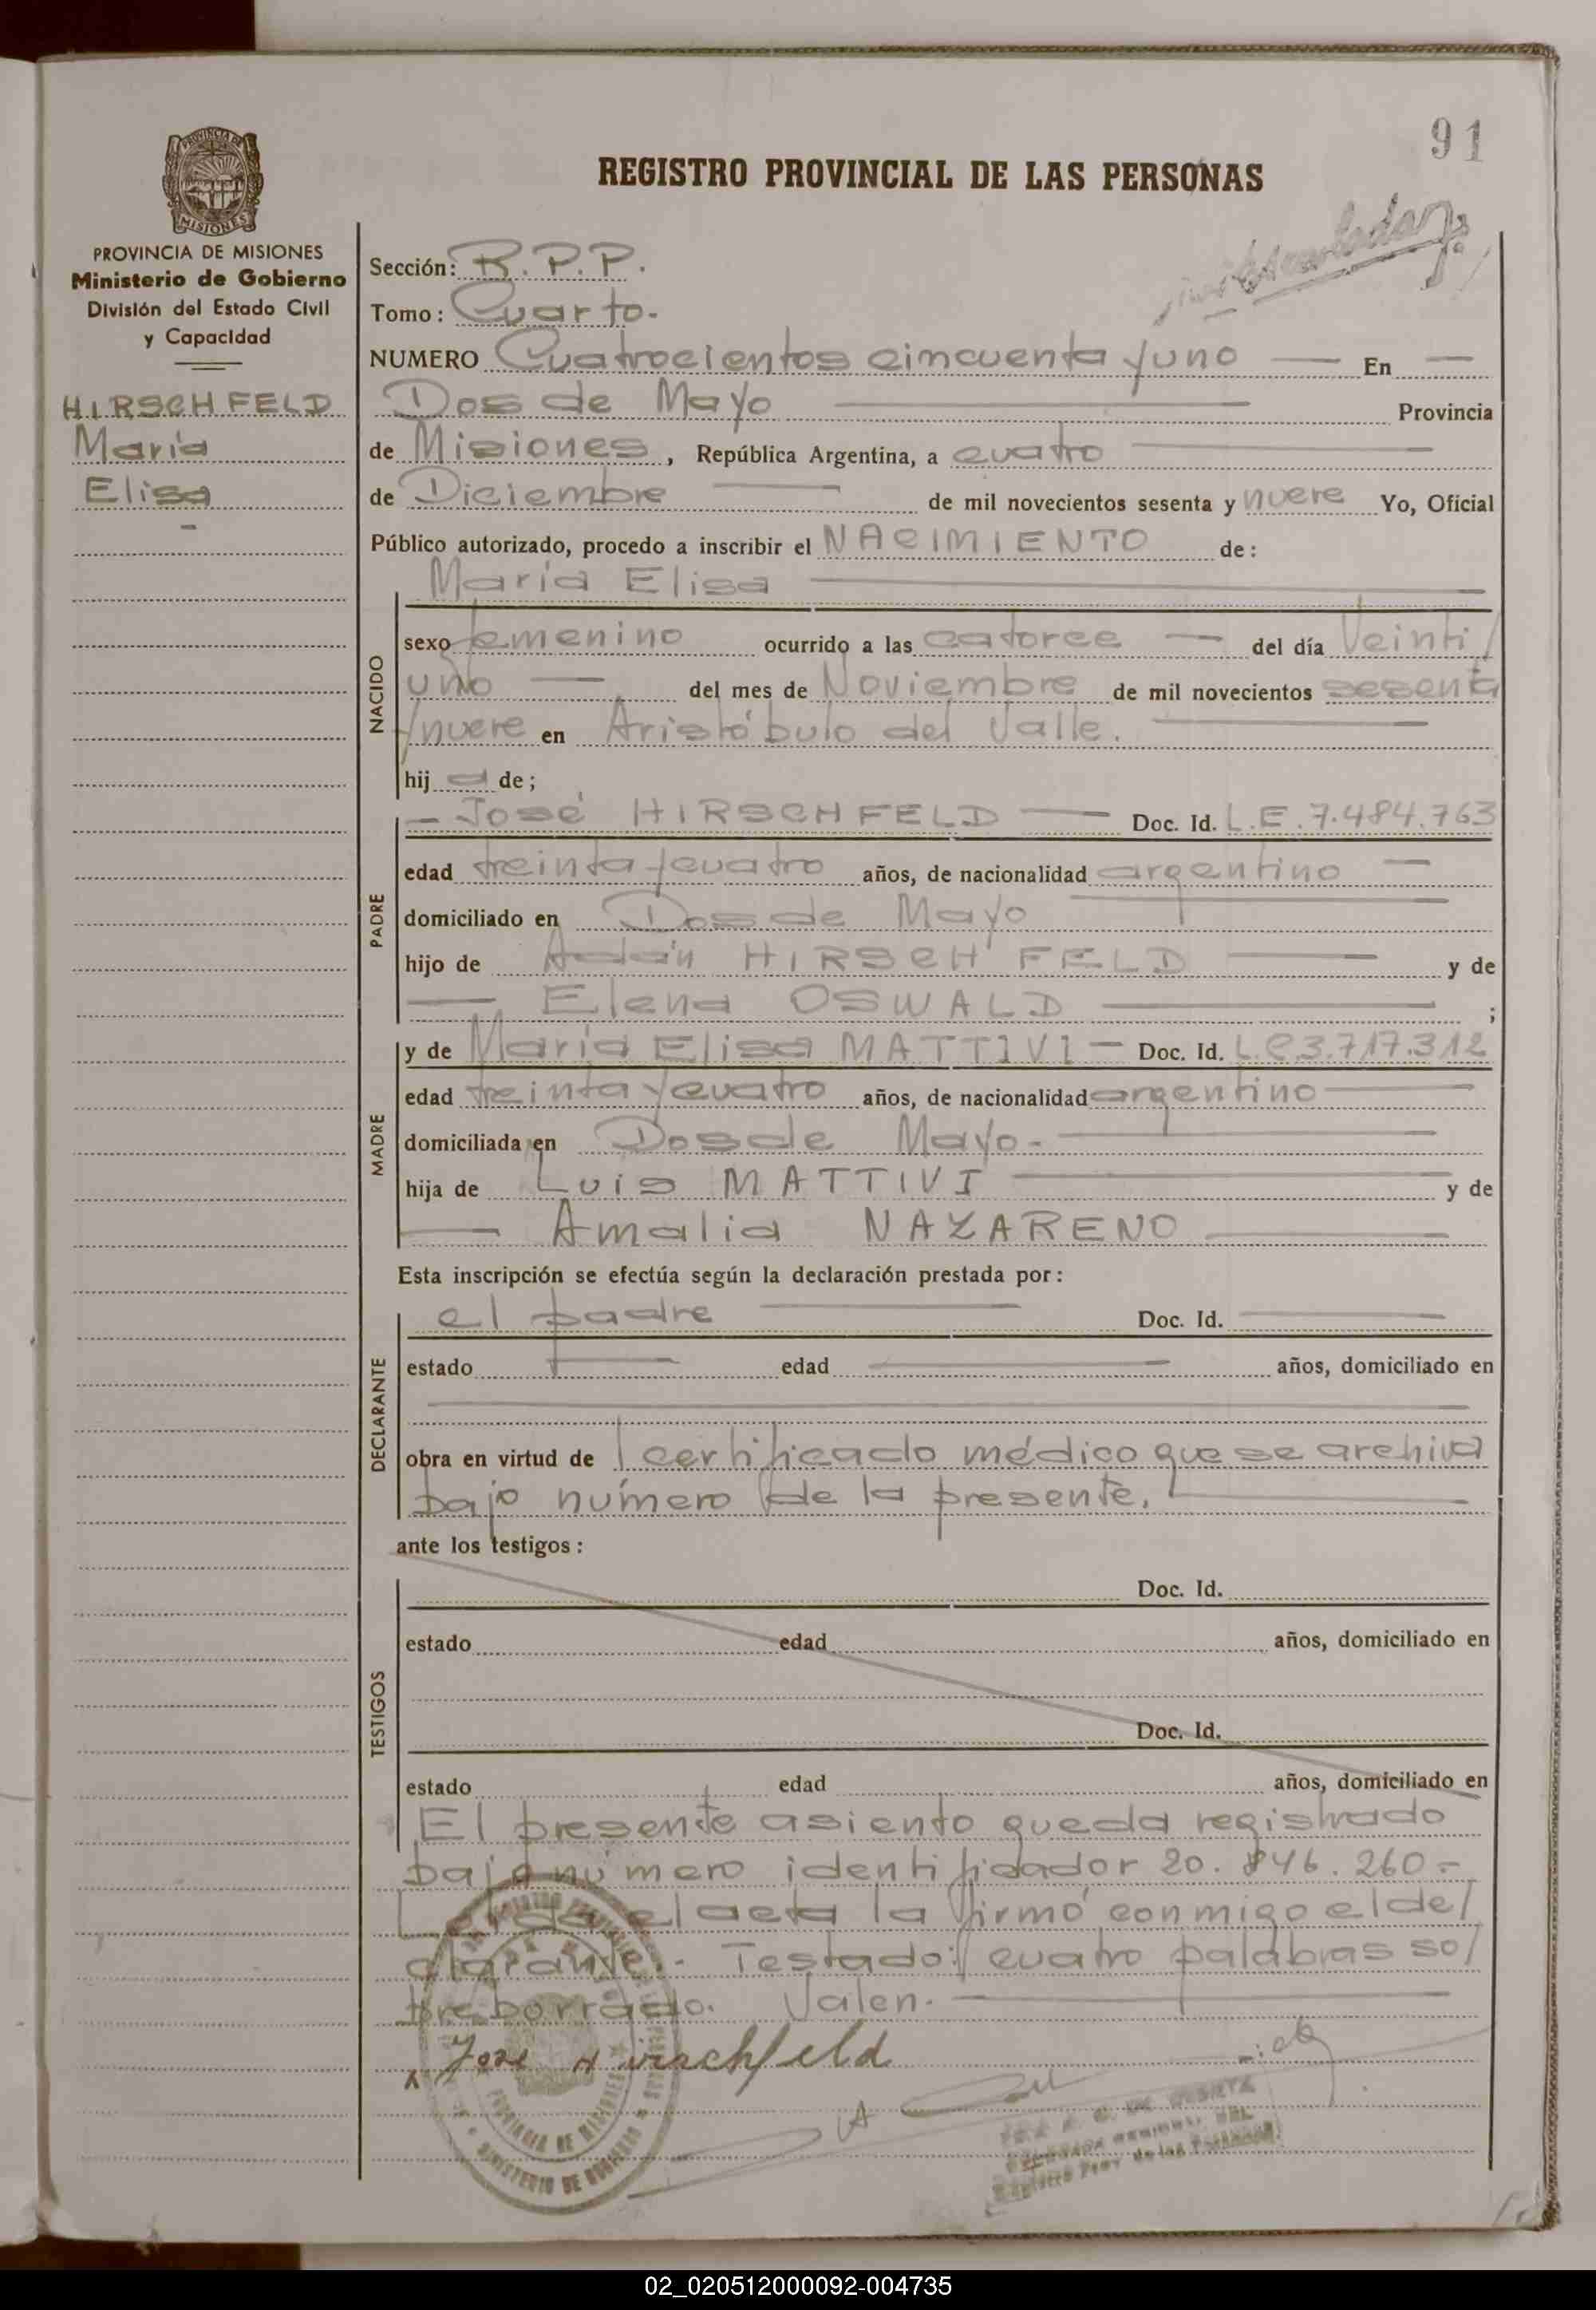 91
REGISTRO PROVINCIAL DE LAS PERSONAS
PROVINCIA DE MISIONES
Ministerio de Gobierno
División del Estado Civil
y Capacidad
HIRSCHFELD
María
Elisa
Sección: R.P.P.
Tomo: Cuarto.
NUMERO Cuatrocientos cincuenta y uno — En —
Dos de Mayo — Provincia
de Misiones, República Argentina, a cuatro —
de Diciembre — de mil novecientos sesenta y nueve Yo, Oficial
Público autorizado, procedo a inscribir el NACIMIENTO de:
María Elisa —
NACIDO
sexo femenino ocurrido a las catorce — del día Veinti/
uno — del mes de Noviembre de mil novecientos sesenta
y nueve en Aristóbulo del Valle. —
hij a de;
PADRE
— José HIRSCHFELD — Doc. Id. L.E. 7.484.763
edad treinta y cuatro años, de nacionalidad argentino —
domiciliado en Dos de Mayo —
hijo de Adán HIRSCHFELD — y de
— Elena OSWALD — ;
MADRE
y de María Elisa MATTIVI — Doc. Id. L.C 3.717.312
edad treinta y cuatro años, de nacionalidad argentino —
domiciliada en Dos de Mayo. —
hija de Luis MATTIVI — y de
— Amalia NAZARENO —
Esta inscripción se efectúa según la declaración prestada por:
DECLARANTE
el padre — Doc. Id. —
estado — edad — años, domiciliado en
—
obra en virtud de certificado médico que se archiva
bajo número de la presente. —
ante los testigos:
TESTIGOS
Doc. Id.
estado edad años, domiciliado en
Doc. Id.
estado edad años, domiciliado en
El presente asiento queda registrado
bajo número identificador 20.846.260.-
Leída el acta la firmó conmigo el de/
clarante.- Testado: cuatro palabras so/
breborrado. Valen. —
x José Hirschfeld
PROVINCIA DE MISIONES
MINISTERIO DE GOBIERNO
Registro Prov. de las Personas
02_020512000092-004735